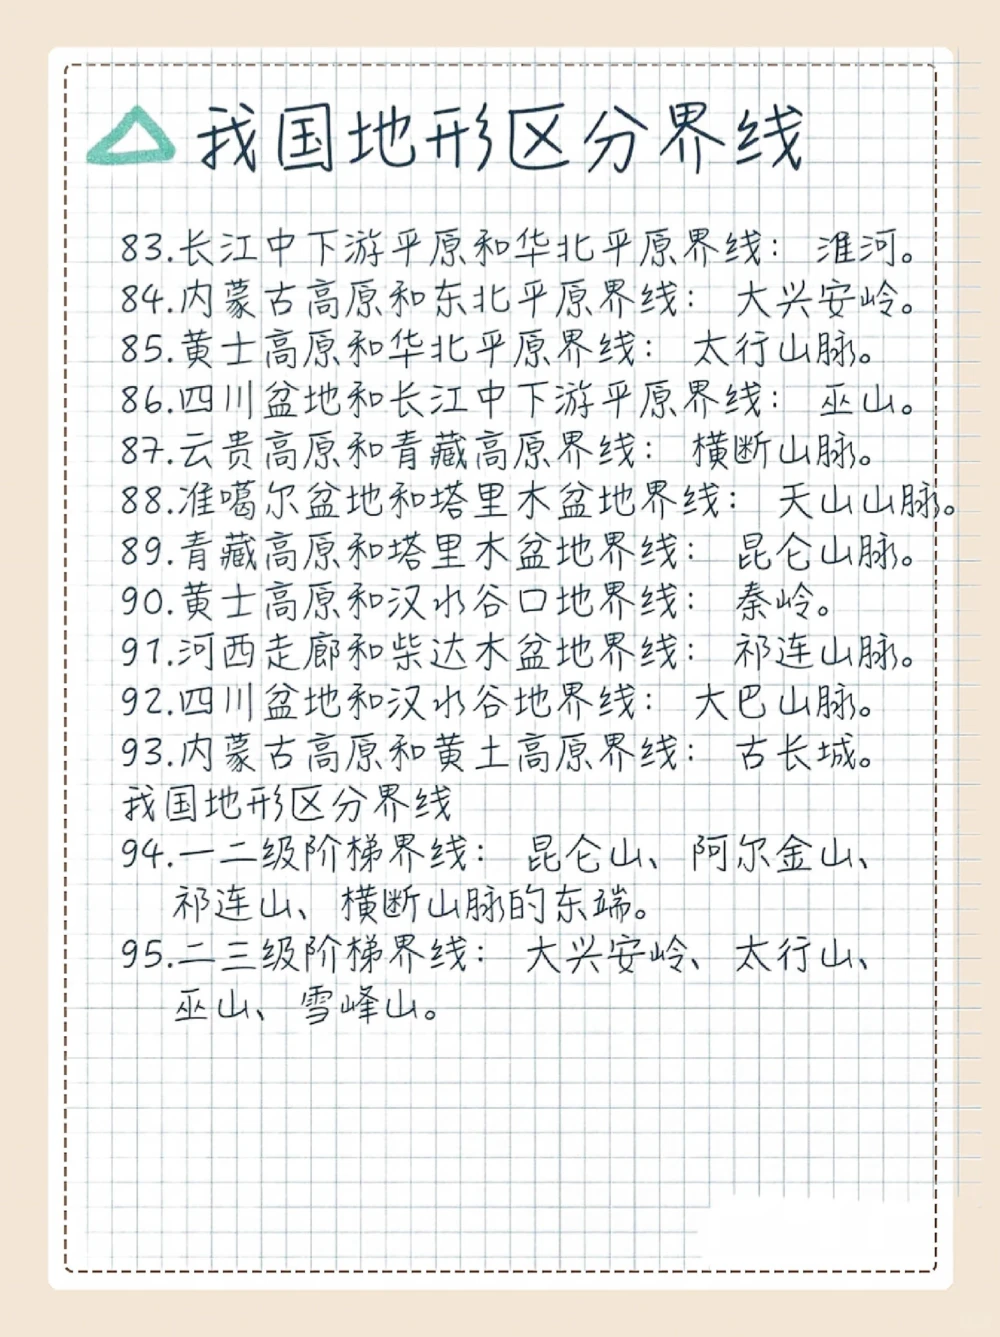 我国地形区分界线
83.长江中下游平原和华北平原界线： 淮河。
84.内蒙古高原和东北平原界线： 大兴安岭。
85.黄士高原和华北平原界线： 太行山脉。
86.四川盆地和长江中下游平原界线： 巫山。
87.云贵高原和青藏高原界线： 横断山脉。
88.准噶尔盆地和塔里木盆地界线： 天山山脉。
89.青藏高原和塔里木盆地界线： 昆仑山脉。
90.黄士高原和汉水谷口地界线： 秦岭。
91.河西走廊和柴达木盆地界线： 祁连山脉。
92.四川盆地和汉水谷地界线： 大巴山脉。
93.内蒙古高原和黄土高原界线： 古长城。
我国地形区分界线
94.一二级阶梯界线： 昆仑山、阿尔金山、
祁连山、横断山脉的东端。
95.二三级阶梯界线： 大兴安岭、太行山、
巫山、雪峰山。